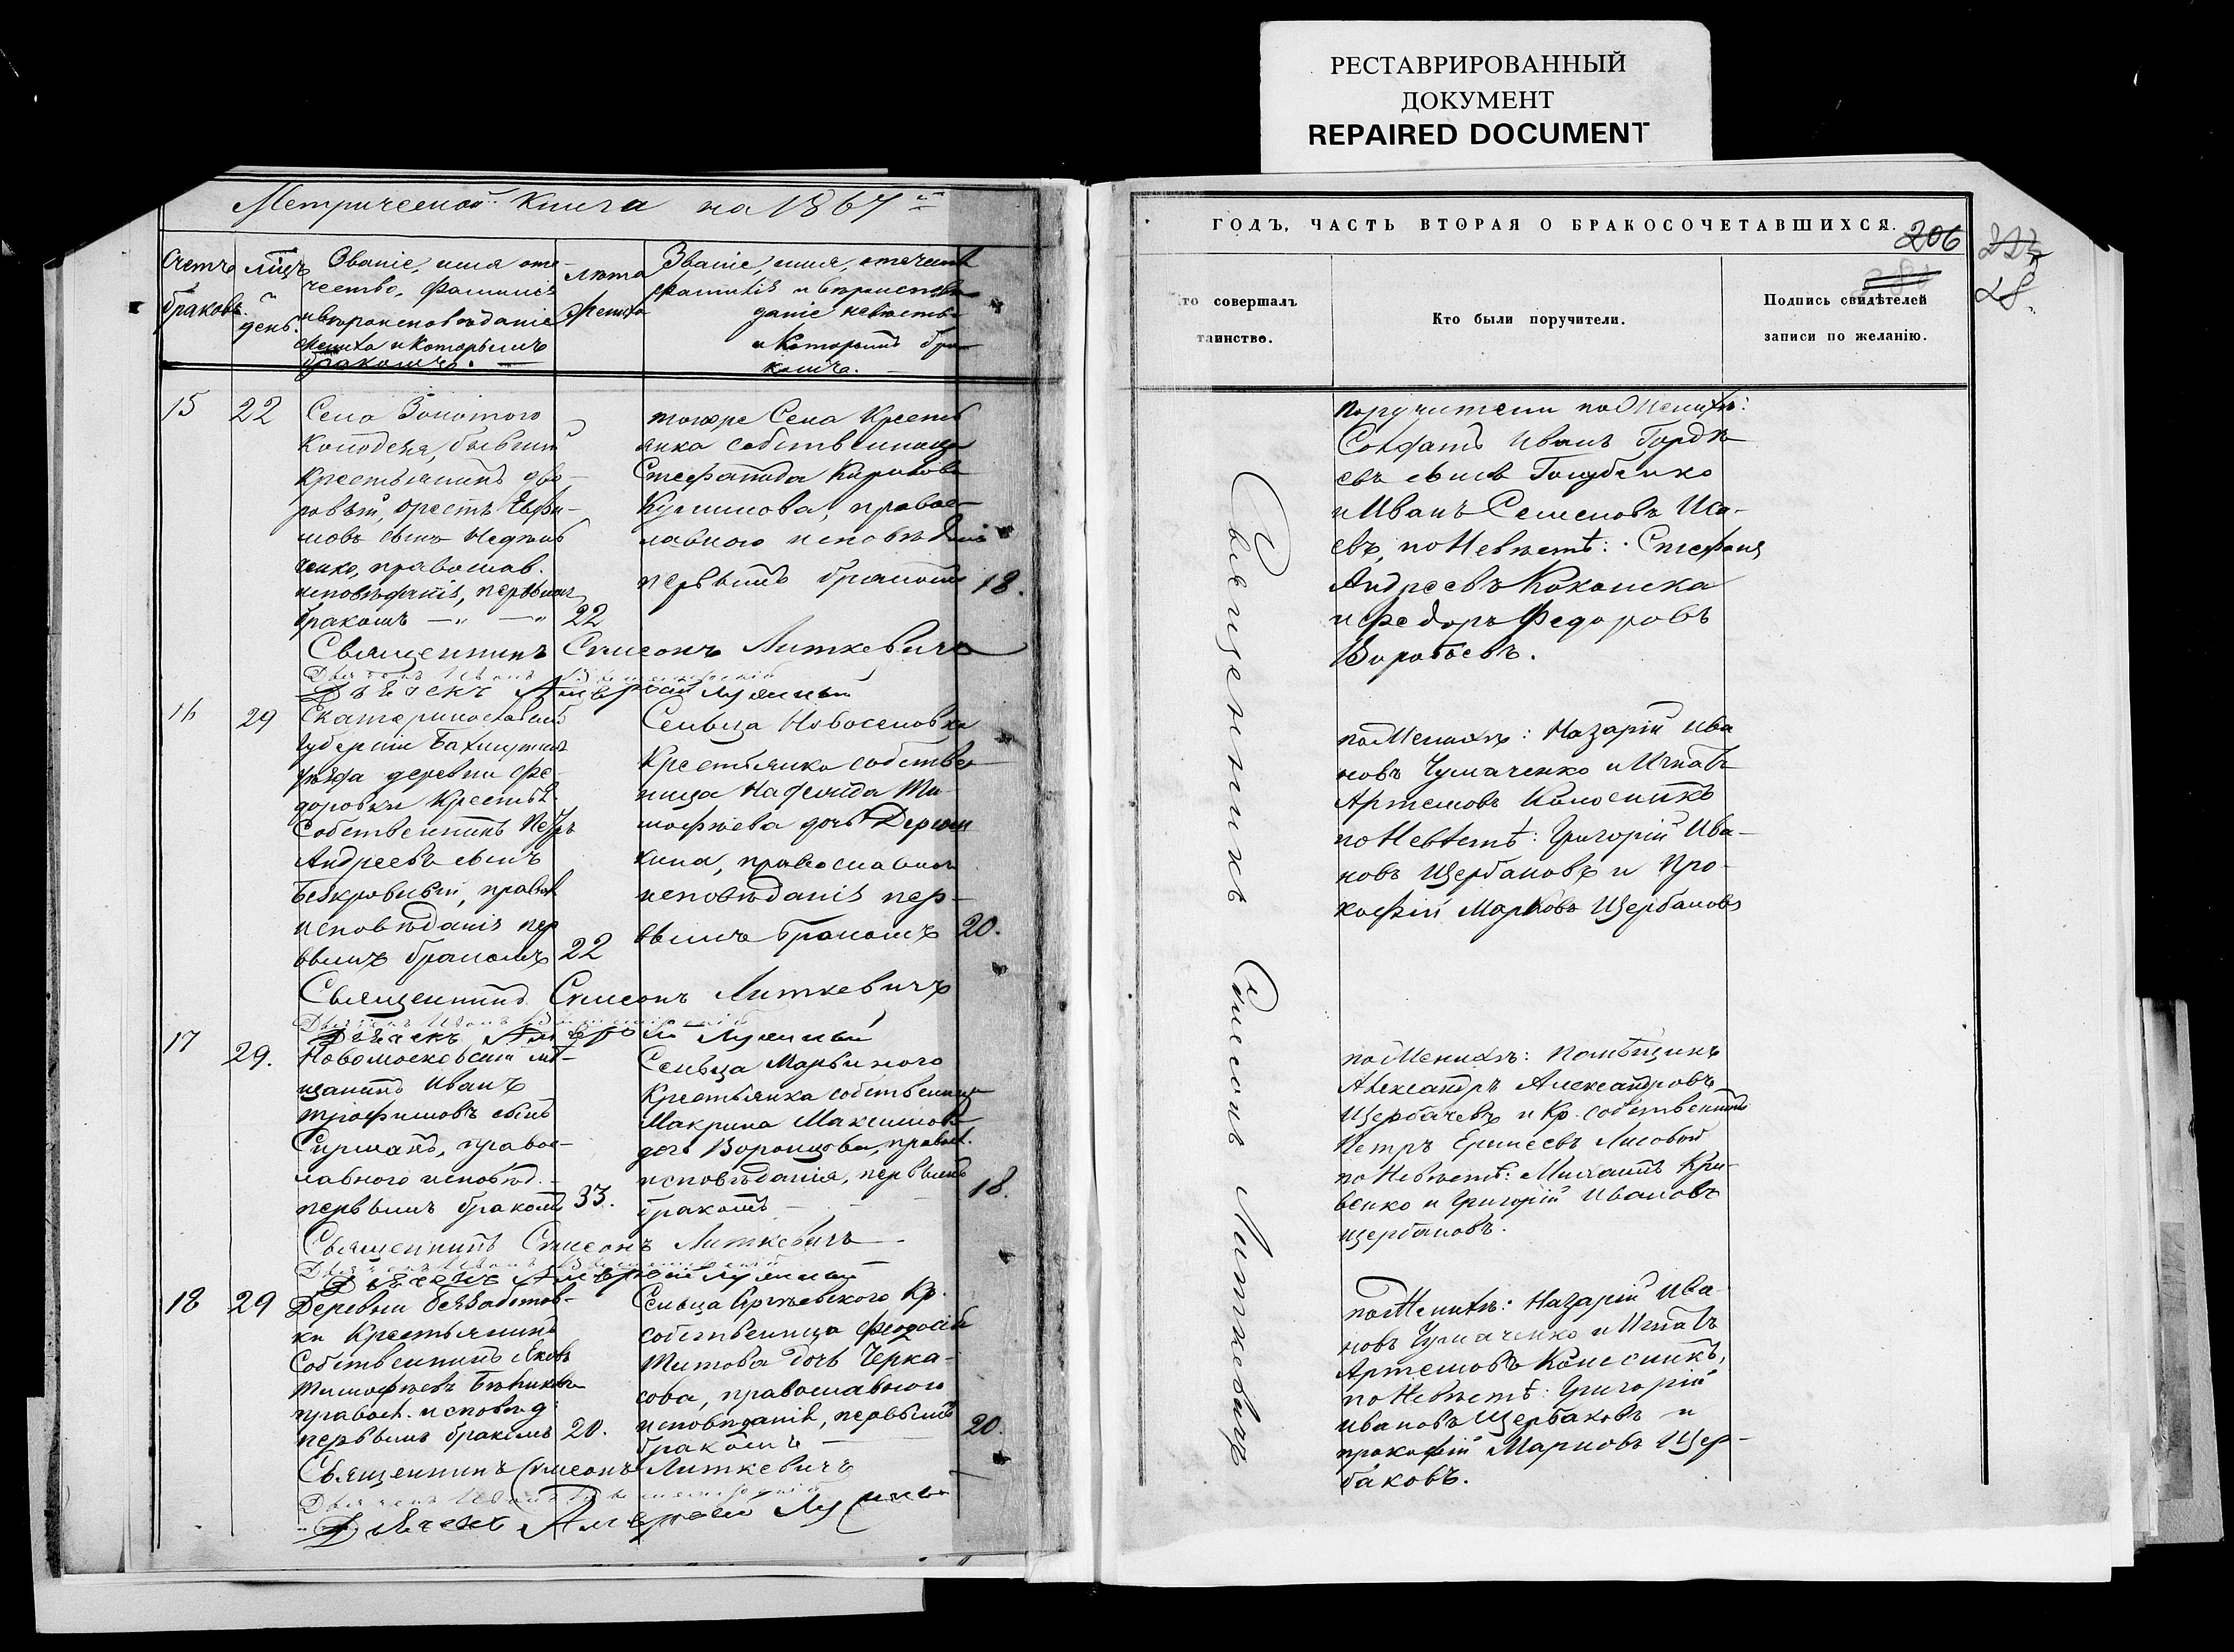 РЕСТАВРИРОВАННЫЙ
ДОКУМЕНТ
REPAIRED DOCUMENT
Метрической Книги на 1867й
Счетъ браковъ.
мцъ и день.
Званіе, имя оте-
чество, фамилія
и вѣроисповѣданіе
жениха и которымъ
бракомъ.
лѣта жениха
Званіе, имя, отечеств
фамилія и вѣроисповѣ
даніе невѣсты
и которымъ бра
комъ.
15 22
Села Золотого
Колодезя, бывшій
Крестьянинъ дво-
ровый, Орестъ
мовъ сынъ
ченко, православ.
исповѣданія, первымъ
бракомъ 22
тогоже Села Кресть
янка собственница
Стефанида Кирилова
Куликова, правос-
лавного исповѣданія
первымъ бракомъ 18.
Священникъ Симеонъ Литкевичъ
Дьячекъ
16 29
Екатеринославской
Губерніи Бахмутскаго
уѣзда деревни Фе-
доровки Крестья.
Собственникъ Петръ
Андреевъ сынъ
Безкровный, правос
исповѣданія пер
вымъ бракомъ 22
Сельца Новоселовки
Крестьянка собствен
ница Ти-
мофѣева дочь
кина, православног
исповѣданія пер-
вымъ бракомъ 20.
Священникъ Симеонъ Литкевичъ
Дьячекъ
17 29.
Новомосковскій мѣ-
щанинъ Иванъ
Трофимовъ сынъ
правос-
лавного исповѣд.
первымъ бракомъ 33.
Сельца Марьиного
Крестьянка собственница
Макрина Максимова
дочь Воронцова, правос.
исповѣданія, первымъ
бракомъ 18.
Священникъ Симеонъ Литкевичъ
Дьячекъ
18 29
Деревни Беззаботов-
ки Крестьянинъ
Собственникъ Яковъ
Тимофѣевъ
правос. исповѣд:
первымъ бракомъ 20.
Сельца Кр.
собственница Феодосія
Титова дочь Черка-
сова, православного
исповѣданія, первымъ
бракомъ 20.
Священникъ Симеонъ Литкевичъ
Дьячекъ
ГОДЪ, ЧАСТЬ ВТОРАЯ О БРАКОСОЧЕТАВШИХСЯ.
206
28.
то совершалъ
таинство.
Кто были поручители.
Подпись свидѣтелей
записи по желанію.
Священникъ Симеонъ Литкевичъ
Поручители по Женихѣ:
Солдатъ Иванъ Гордѣ
евъ сынъ Голубенко
и Иванъ Семеновъ Иса-
евъ, по Невѣстѣ: Стефанъ
Андреевъ
и Федоръ Федоровъ
Воробьевъ.
по Женихѣ: Назарій Ива
новъ Чумаченко и Игнатъ
Артемовъ Колесникъ
по Невѣстѣ: Григорій Ива-
новъ Щербаковъ и Про-
кофій Марковъ Щербаковъ
по Женихѣ: помѣщикъ
Александръ Александровъ
Щербачевъ и Кр. собственникъ
Петръ Лисовой
по Невѣстѣ: Михаилъ Кри-
венко и Григорій Ивановъ
Щербаковъ.
по Женихѣ: Назарій Ива-
новъ Чумаченко и Игнатъ
Артемовъ Колесникъ,
по Невѣстѣ: Григорій
Ивановъ Щербаковъ и
прокофій Марковъ Щер-
баковъ.